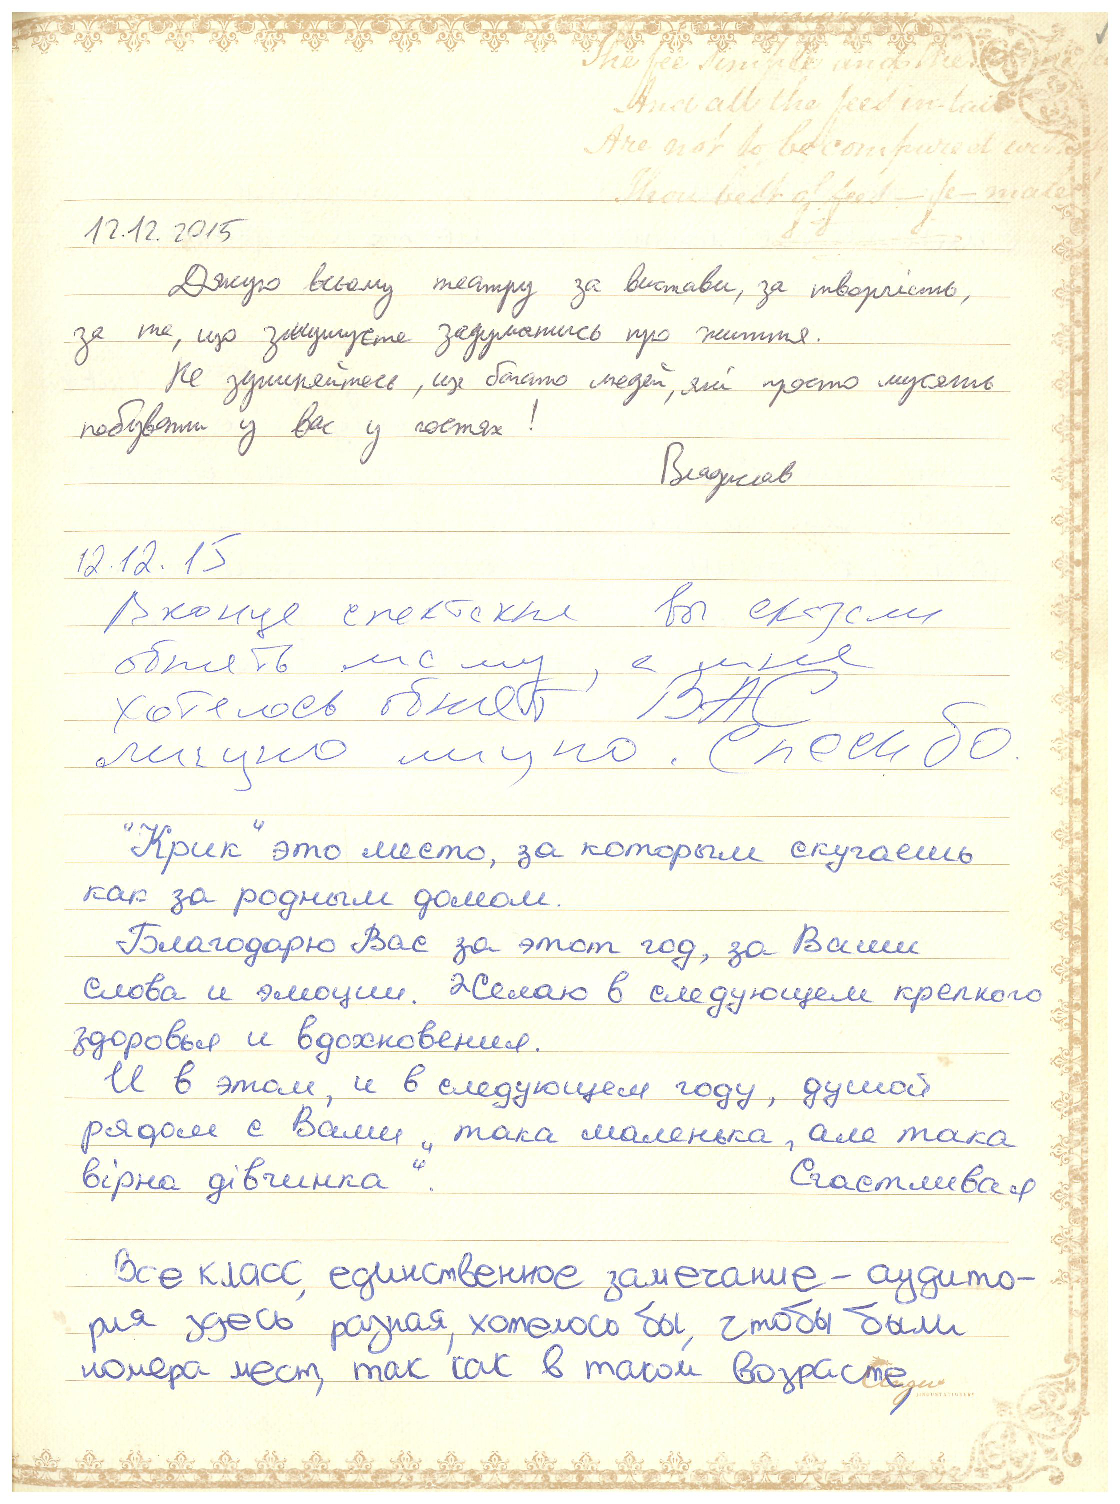 The fee simple and the
And all the fees in tail
Are not to be compared with
Thou best of fees – fe-male!
12.12.2015
Дякую всьому театру за вистави, за творчість,
за те, що змушуєте задуматись про життя.
Не зупиняйтесь, ще багато людей, які просто мусять
побувати у вас у гостях!
Владислав
12.12.15
В конце спектакля вы сказали
обнять маму, а мне
хотелось обнять ВАС
лично лично. Спасибо.
"Крик" это место, за которым скучаешь
как за родным домом.
Благодарю Вас за этот год, за Ваши
слова и эмоции. Желаю в следующем крепкого
здоровья и вдохновения.
И в этом, и в следующем году, душой
рядом с Вами „така маленька, але така
вірна дівчинка“.
Счастливая
Все класс, единственное замечание – аудито-
рия здесь разная, хотелось бы, чтобы были
номера мест, так как в таком возрасте